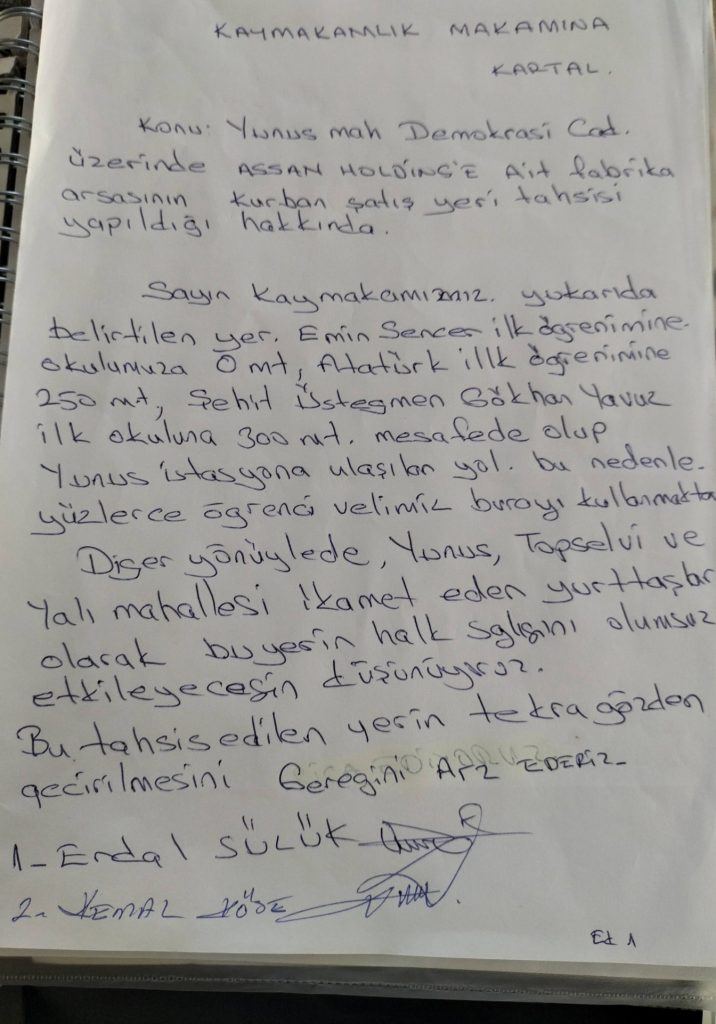 KAYMAKAMLIK MAKAMINA
KARTAL.
Konu: Yunus mah Demokrasi Cad.
üzerinde ASSAN HOLDİNG'E Ait fabrika
arsasının kurban satış yeri tahsisi
yapıldığı hakkında.
Sayın Kaymakamımız. yukarıda
belirtilen yer. Emin Sencer ilk öğrenimine
okulumuza 0 mt, Atatürk illk öğrenimine
250 mt, Şehit Üsteğmen Gökhan Yavuz
ilk okuluna 300 mt. mesafede olup
Yunus istasyona ulaşılan yol. bu nedenle
yüzlerce öğrenci velimiz burayı kullanmakta
Diğer yönüylede, Yunus, Topselvi ve
Yalı mahallesi ikamet eden yurttaşlar
olarak bu yerin halk sağlığını olumsuz
etkileyeceğin düşünüyoruz.
Bu tahsis edilen yerin tekra gözden
geçirilmesini Gereğini Arz EDERİZ
1- Erdal SÜLÜK
2- KEMAL KÖSE
Ek 1